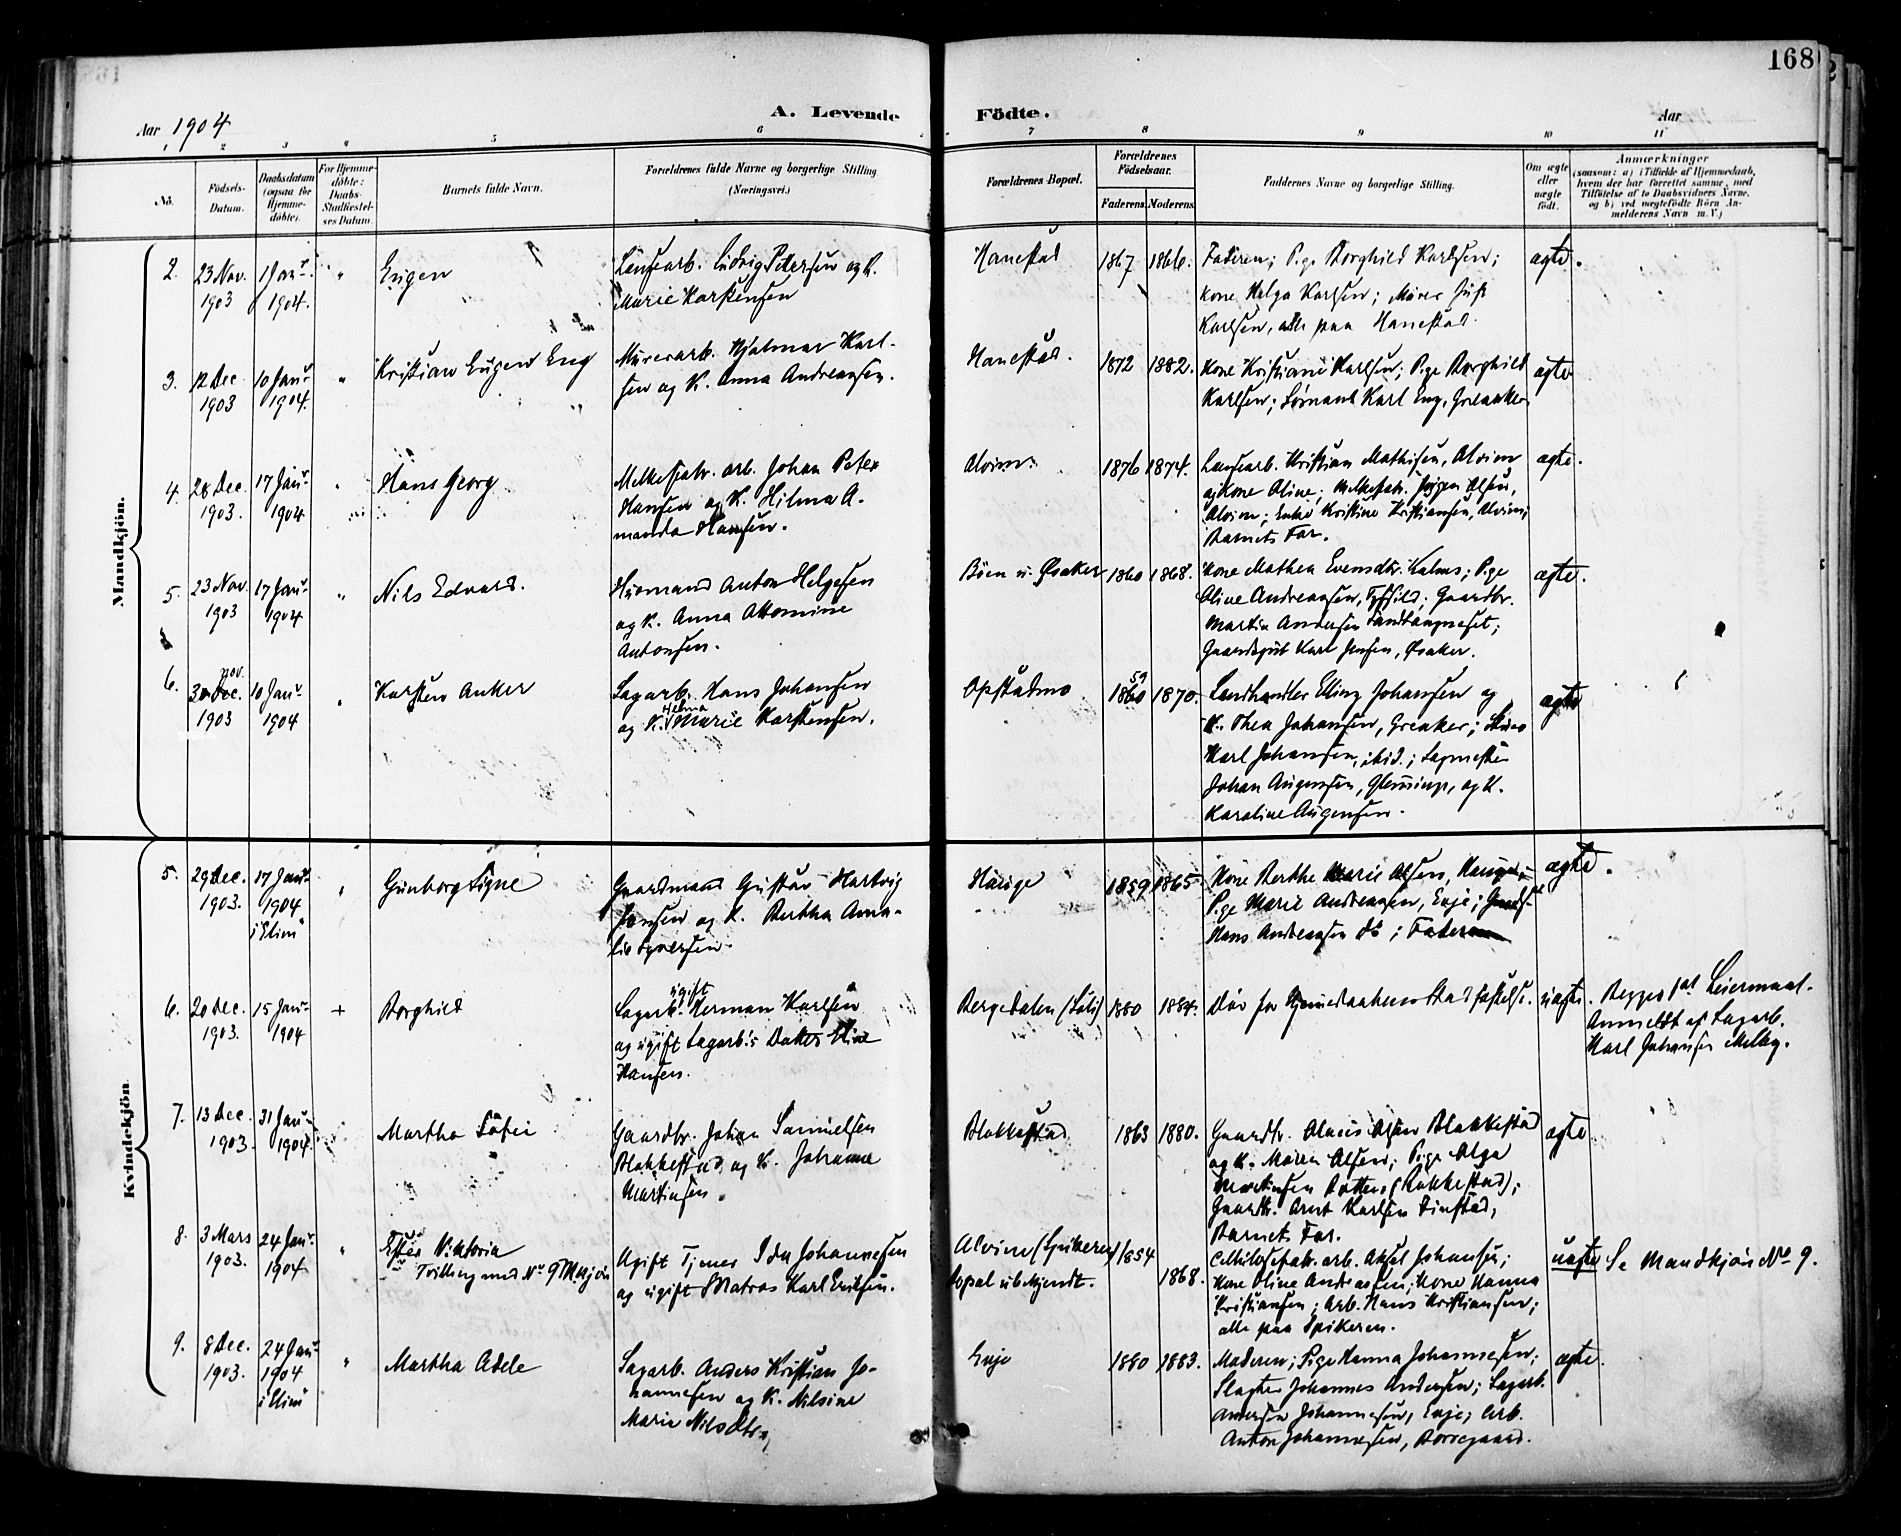 168
Aar 1904
A. Levende
Födte.
Aar
1 2 3 4 5 6
7 8 9 10 11
No.
Födsels-
Datum.
Daabsdatum
(ogsaa for
Hjemme-
döbte).
For Hjemme-
döbte:
Daabs-
Stadfæstel-
ses Datum.
Barnets fulde Navn.
Forældrenes fulde Navne og borgerlige Stilling
(Næringsvei.)
Forældrenes Bopæl.
Forældrenes
Födselsaar.
Faderens. Moderens.
Faddernes Navne og borgerlige Stilling.
Om ægte
eller
uægte
födt.
Anmærkninger
(saasom: a) i Tilfælde af Hjemmedaab,
hvem der har forrettet samme, med
Tilföielse af to Daabsvidners Navne,
og b) ved uægtefödte Börn An-
melderens Navn m. V.)
Mandkjön.
2. 23 Nov. 1903
1 Janr. 1904.
"
Eugen
Lensearb. Ludvig Petersen og K.
Marie Karstensen
Hanestad
1867 1866.
Faderen; Pige Borghild Karlsen;
Kone Helga Karlsen; Murer
Karlsen, alle paa Hanestad.
ægte.
3. 12 Dec 1903
10 Janr 1904.
"
Kristian Eugen Eng
Murerarb. Hjalmar Karl-
sen og K. Anna Andreassen.
Hanestad.
1872 1882.
Kone Kristiane Karlsen; Pige Borghild
Karlsen; Karl Eng, Greaaker
ægte
4. 28 Dec 1903.
17 Janr 1904
"
Hans Georg
Melkefabr. arb. Johan Peter
Hansen og K. Hilma A-
manda Hansen.
Alvim.
1876 1874.
Lensearb. Kristian Mathisen, Alvim
og Kone Oline; Melkefabr. Jørgen Olsen,
Alvim; Enke Kristine Kristiansen, Alvim;
Barnets Far.
ægte.
5. 23 Nov 1903
17 Janr 1904
"
Nils Edvard.
Husmand Anton Helgesen
og K. Anna Attomine
Antonsen.
Böen u. Øsaker
1860 1868.
Kone Mathea Evensdtr. Kalnes; Pige
Oline Andreassen, Gaardbr.
Martin Andersen
Gaardsgut Karl Jensen, Øsaker.
ægte.
6. 30 Dec. nov. 1903
10 Janr 1904
"
Karsten Anker
Sagarb. Hans Johansen
og K. Helma Marie Karstensen.
Opstadmo
1860 59 1870.
Landhandler Elling Johansen og
K. Thea Johansen, Greaker;
Karl Johansen, ibid.; Sagmester
Johan Augensen, og K.
Karoline Augensen.
ægte
Kvindekjön.
5. 29 Dec. 1903.
17 Janr 1904
i "Elim"
"
Gunborg Signe
Gaardmand Gustav Hartvig
Jensen og K. Bertha Ama-
lie Syversen.
Hauge
1859 1865
Kone Berthe Marie Olsen, Hauge;
Pige Marie Andreassen, Enje;
Hans Andreassen do; Faderen
ægte.
6. 20 Dec. 1903.
15 Janr 1904
+
Borghild
Sagarb. ugift Herman Karlsen
og ugift Sagarb's Datter Eline
Hansen.
Bergedalen (Soli)
1880 1884.
Död før Hjemmedaabens Stadfæstelse.
uægte.
Begges 1ste Leiermaal.
Anmeldt af Sagarb.
Karl Johansen Melby.
7. 13 Dec. 1903.
31 Janr 1904.
"
Martha Sofie
Gaardbr. Johan Samuelsen
Blakkestad og K. Johanne
Martinsen.
Blakkestad
1863 1880.
Gaardbr. Olaus Olsen Blakkestad
og K. Maren Olsen; Pige Olga
Martinsen (Rakkestad);
Gaardbr. Arnt Karlsen
Barnets Far.
ægte
8. 3 Mars 1903.
24 Janr 1904
"
Ester Viktoria
Tvilling med No 9 Mkjön
Ugift Tjener Ida Johannesen
og ugift Matros Karl Eriksen.
Alvim (Spikeren)
bopæl ubekjendt.
1854 1868.
arb. Aksel Johansen;
Kone Oline Andreassen; Kone Hanna
Kristiansen; Arb. Hans Kristiansen;
alle paa Spikeren.
uægte
Se Mandkjön No 9.
9. 8 Dec. 1903.
24 Janr 1904
i "Elim"
"
Martha Adele
Sagarb. Anders Kristian Jo-
hannesen og K. Nilsine
Marie Nilsdtr.
Enje
1880 1883.
Moderen; Pige Hanna Johannesen;
Slagter Johannes Andersen; Sagarb.
Andersen Johannesen, Enje; Arb.
Anton Johannesen, Borregaard.
ægte.